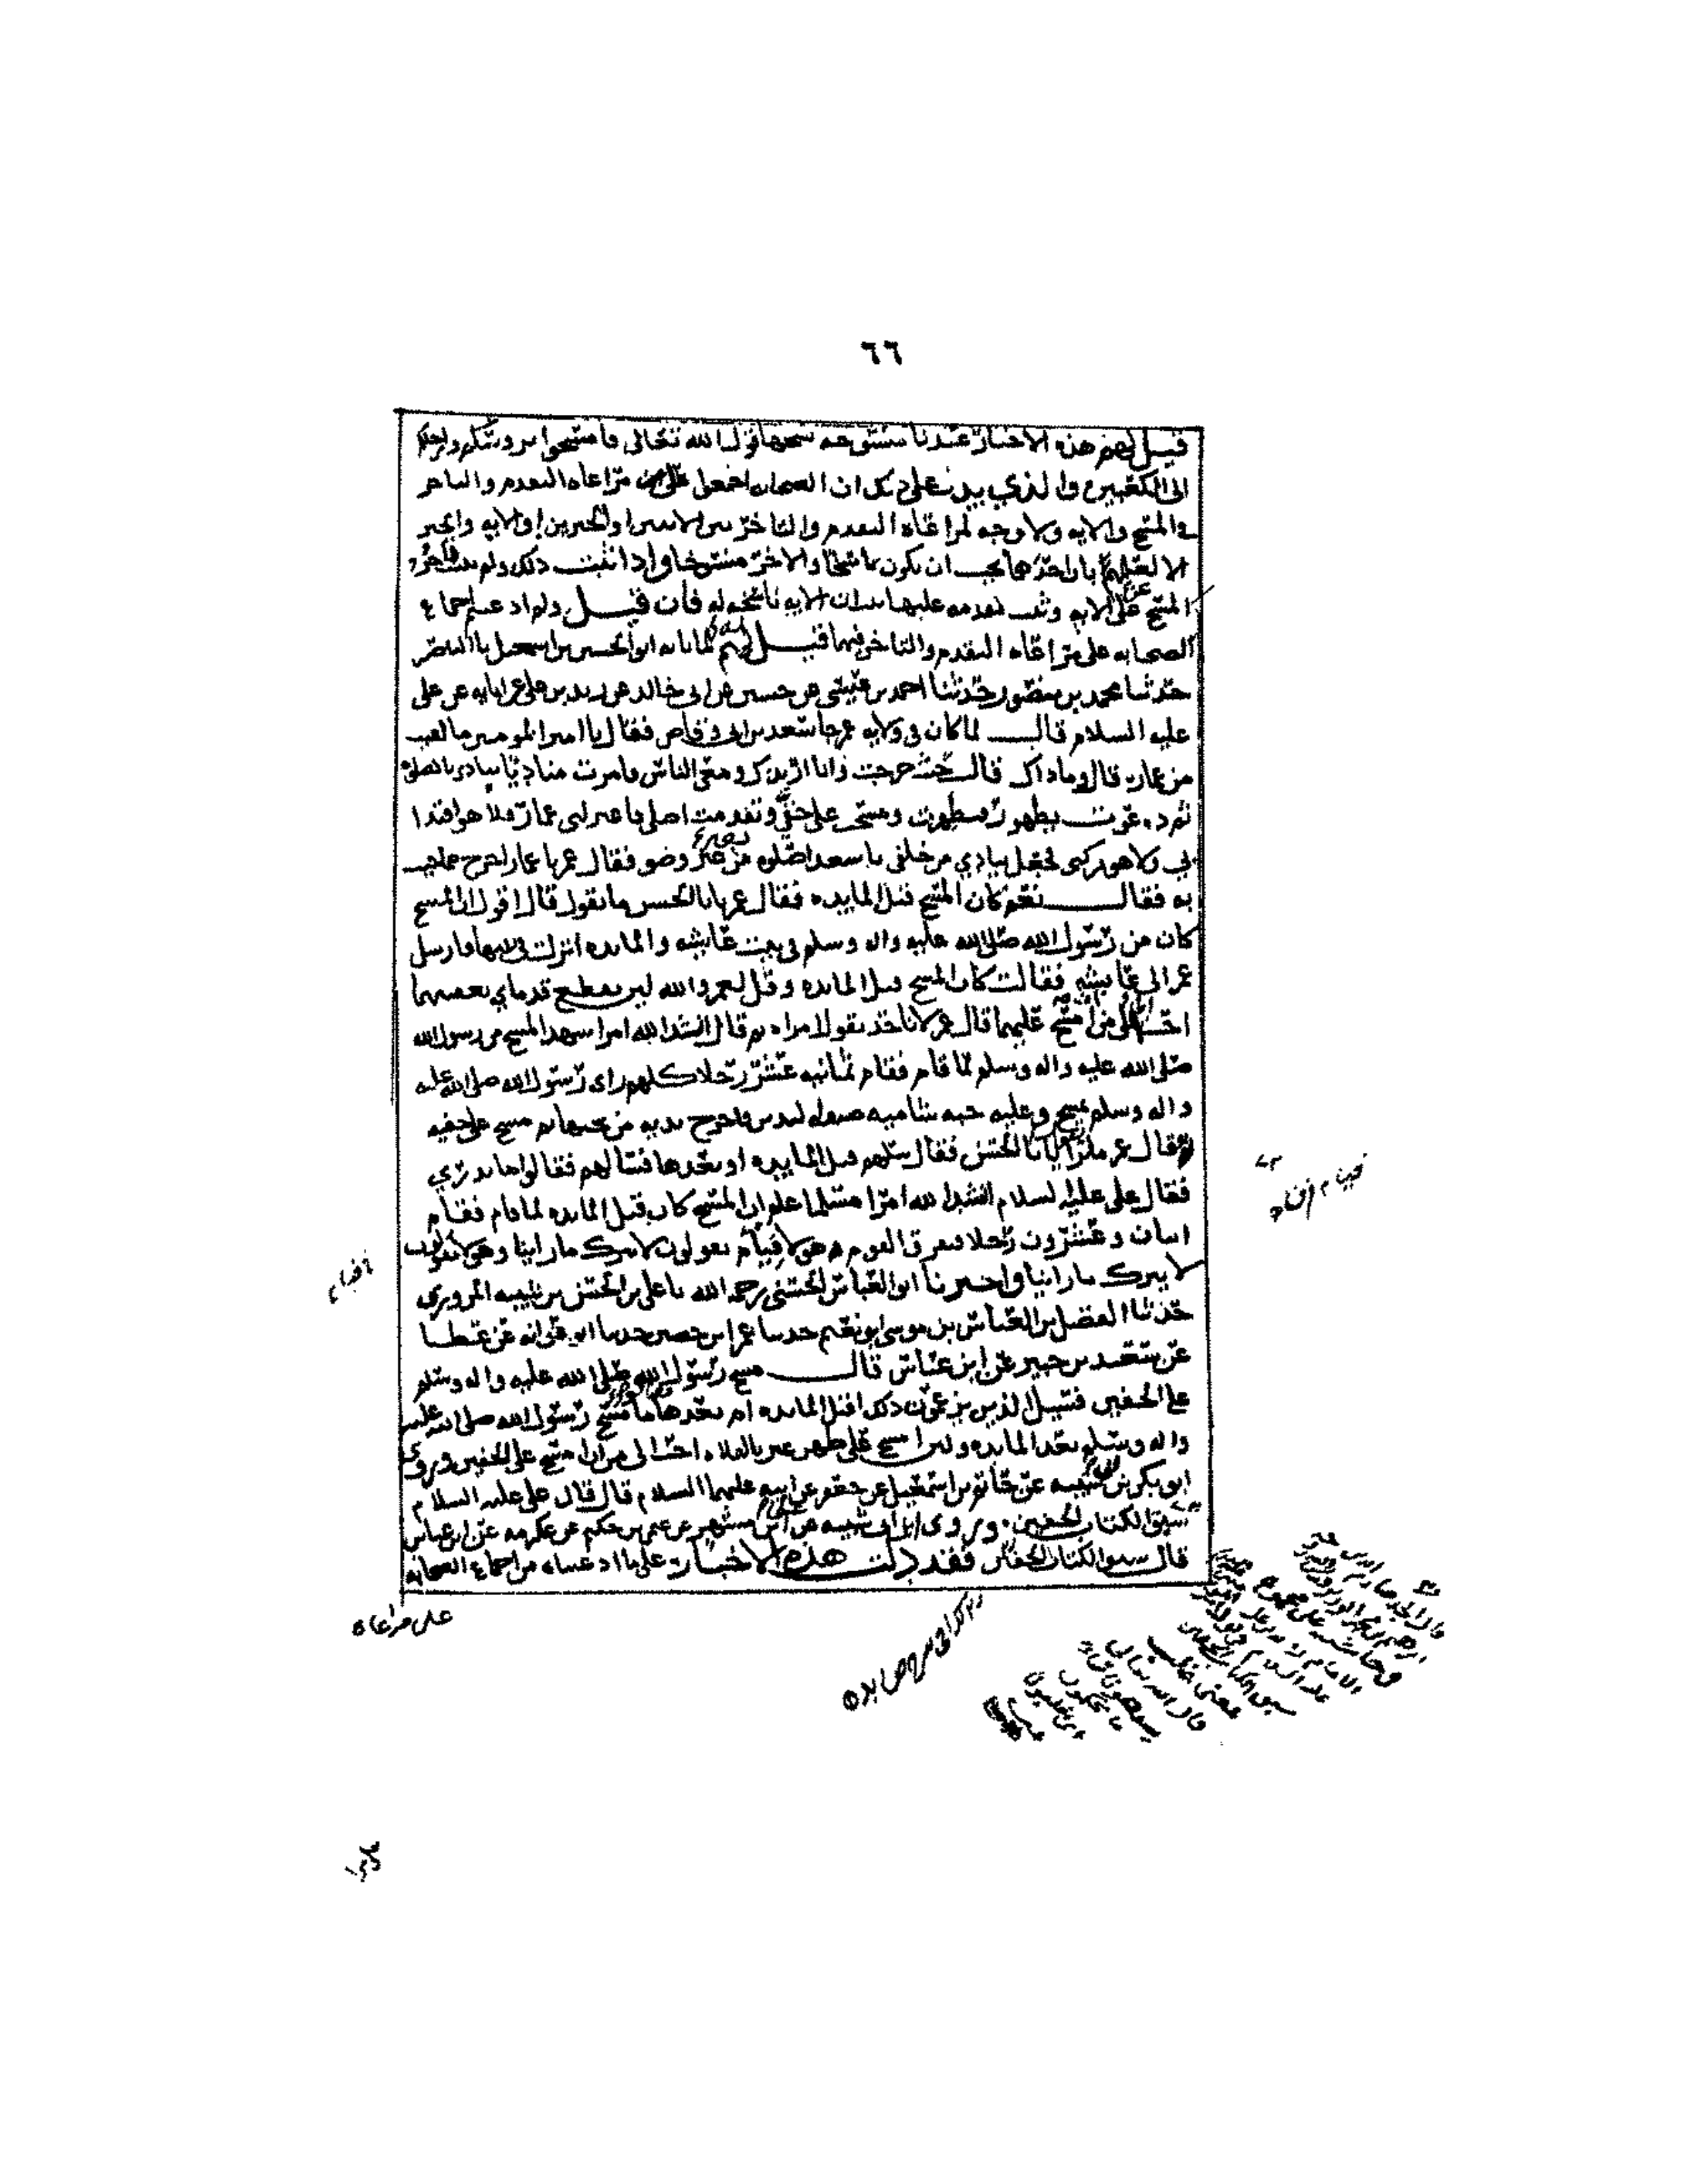 ٦٦
قيل لهم هذه الاخبار عندنا منسوخه نسخها قول الله تعالى فامسحوا بروسكم وارجلكم
الى الكعبين والذي يدل على ذلك ان الصحابه اجمعوا على مراعاه التقدم والتاخر
في المسح والايه ولا وجه لمراعاه التقدم والتاخر بين الاسرا والخبرين او الايه والخبر
الا لعلمهم بان احدهما يجب ان يكون ناسخا والاخر منسوخا واذا ثبت ذلك ولم يثبت تاخر
المسح عن الايه وثبت تقدمه عليها ثبت ان الايه ناسخه له فان قيل ولم ادعيتم اجماع
الصحابه على مراعاه التقدم والتاخر فيهما قيل لهم لما نابه ابو الحسين بن اسمعيل نا الناصر
حدثنا محمد بن منصور حدثنا احمد بن عيسى عن حسين عن ابي خالد عن زيد بن علي عن ابايه عن علي
عليه السلام قال لما كان في ولايه عمر جا سعد بن ابي وقاص فقال يا امير المومنين ما لقيت
من عمار قال وما ذاك قال خرجت وانا اريدك ومعي الناس فامرت مناديا ينادي بالصلاه
ثم دعوت بطهور فتطهرت ومسحت على خفي وتقدمت اصلي فاعتزلني عمار فلا هو اقتدا
بي ولا هو تركني فجعل ينادي من خلفي يا سعد اصلوه من غير وضو فقال عمر يا عمار اخرج مما جيت
به فقال نعم كان المسح قبل المايده فقال عمر يابا الحسن ما تقول قال اقول ان المسح
كان من رسول الله صلى الله عليه واله وسلم في بيت عايشه والمايده انزلت في بيتها فارسل
عمر الى عايشه فقالت كان المسح قبل المايده وقل لعمر والله لين يقطع قدماي بعقبيهما
احب الي من ان امسح عليهما قال عمر لا ناخذ بقول امراه ثم قال انشد الله امرا شهد المسح من رسول الله
صلى الله عليه واله وسلم لما قام فقام ثمانيه عشر رجلا كلهم راى رسول الله صلى الله عليه
واله وسلم يمسح وعليه جبه شاميه ضيقه اليدين فاخرج يديه من تحتها ثم مسح على خفيه
فقال عمر ما ترى يابا الحسن فقال سلهم قبل المايده او بعدها فسالهم فقالوا ما ندري
فقال علي عليه السلام انشد الله امرا مسلما علم ان المسح كان قبل المايده لما قام فقام
اثنان وعشرون رجلا فتفرق القوم وهولا قيام يقولون لا نترك ما راينا وهولا يقولون
لا نترك ما راينا واخبرنا ابو العباس الحسني رحمه الله نا علي بن الحسن بن شيبه المروزي
حدثنا الفضل بن العباس بن موسى ابو نعيم حدثنا عمران بن حصين حدثنا ابو عوانه عن عطا
عن سعيد بن جبير عن ابن عباس قال مسح رسول الله صلى الله عليه واله وسلم
على الخفين فسيل الذين يزعمون ذلك اقبل المايده ام بعدها ما مسح رسول الله صلى الله عليه
واله وسلم بعد المايده ولين امسح على ظهر عير بالفلاه احب الي من ان امسح على الخفين وروى
ابو بكر بن ابي شيبه عن حاتم بن اسمعيل عن جعفر عن ابيه عليهما السلام قال قال علي عليه السلام
سبق الكتاب الخفين وروى ابن ابي شيبه عن علي بن مسهر عن عثمن بن حكيم عن عكرمه عن ابن عباس
قال سبق الكتاب الخفين فقد دلت هذه الاخبار على ما ادعيناه من اجماع الصحابه
على مراعاه